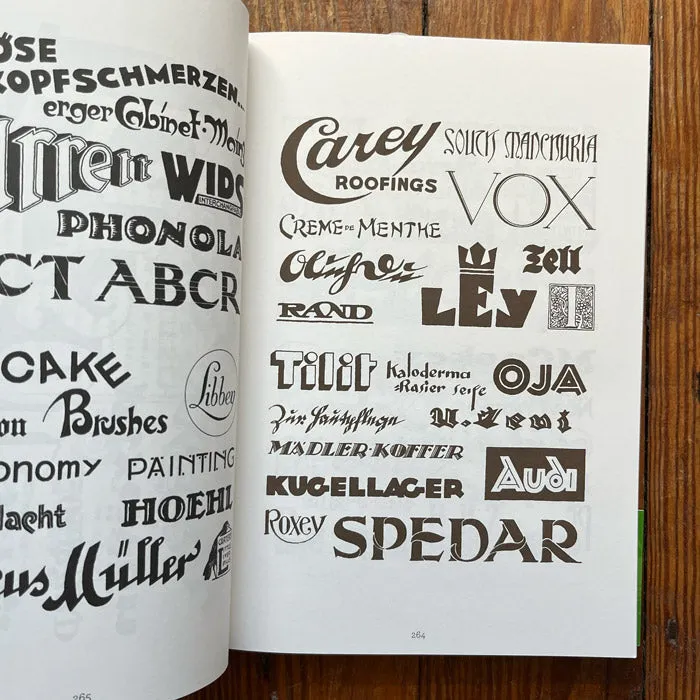 ÖSE
KOPFSCHMERZEN...
erger Cabinet
WIDS
INTERCHANGEABLE
PHONOLA
CT ABCR
CAKE
Libbey
on Brushes
onomy PAINTING
Nacht HOEHL
cus Müller
265
Carey
ROOFINGS
SOUTH MANCHURIA
VOX
CREME DE MENTHE
Zell
LEY
RAND
T
Tilit
Kaloderma
Rasier Seife
OJA
Zur Hautpflege
MÄDLER-KOFFER
Audi
KUGELLAGER
Roxey
SPEDAR
264